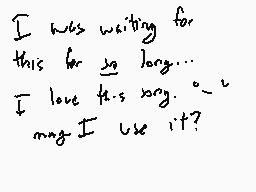 I was waiting for
this for so long...
I love this song. °_°
may I use it?